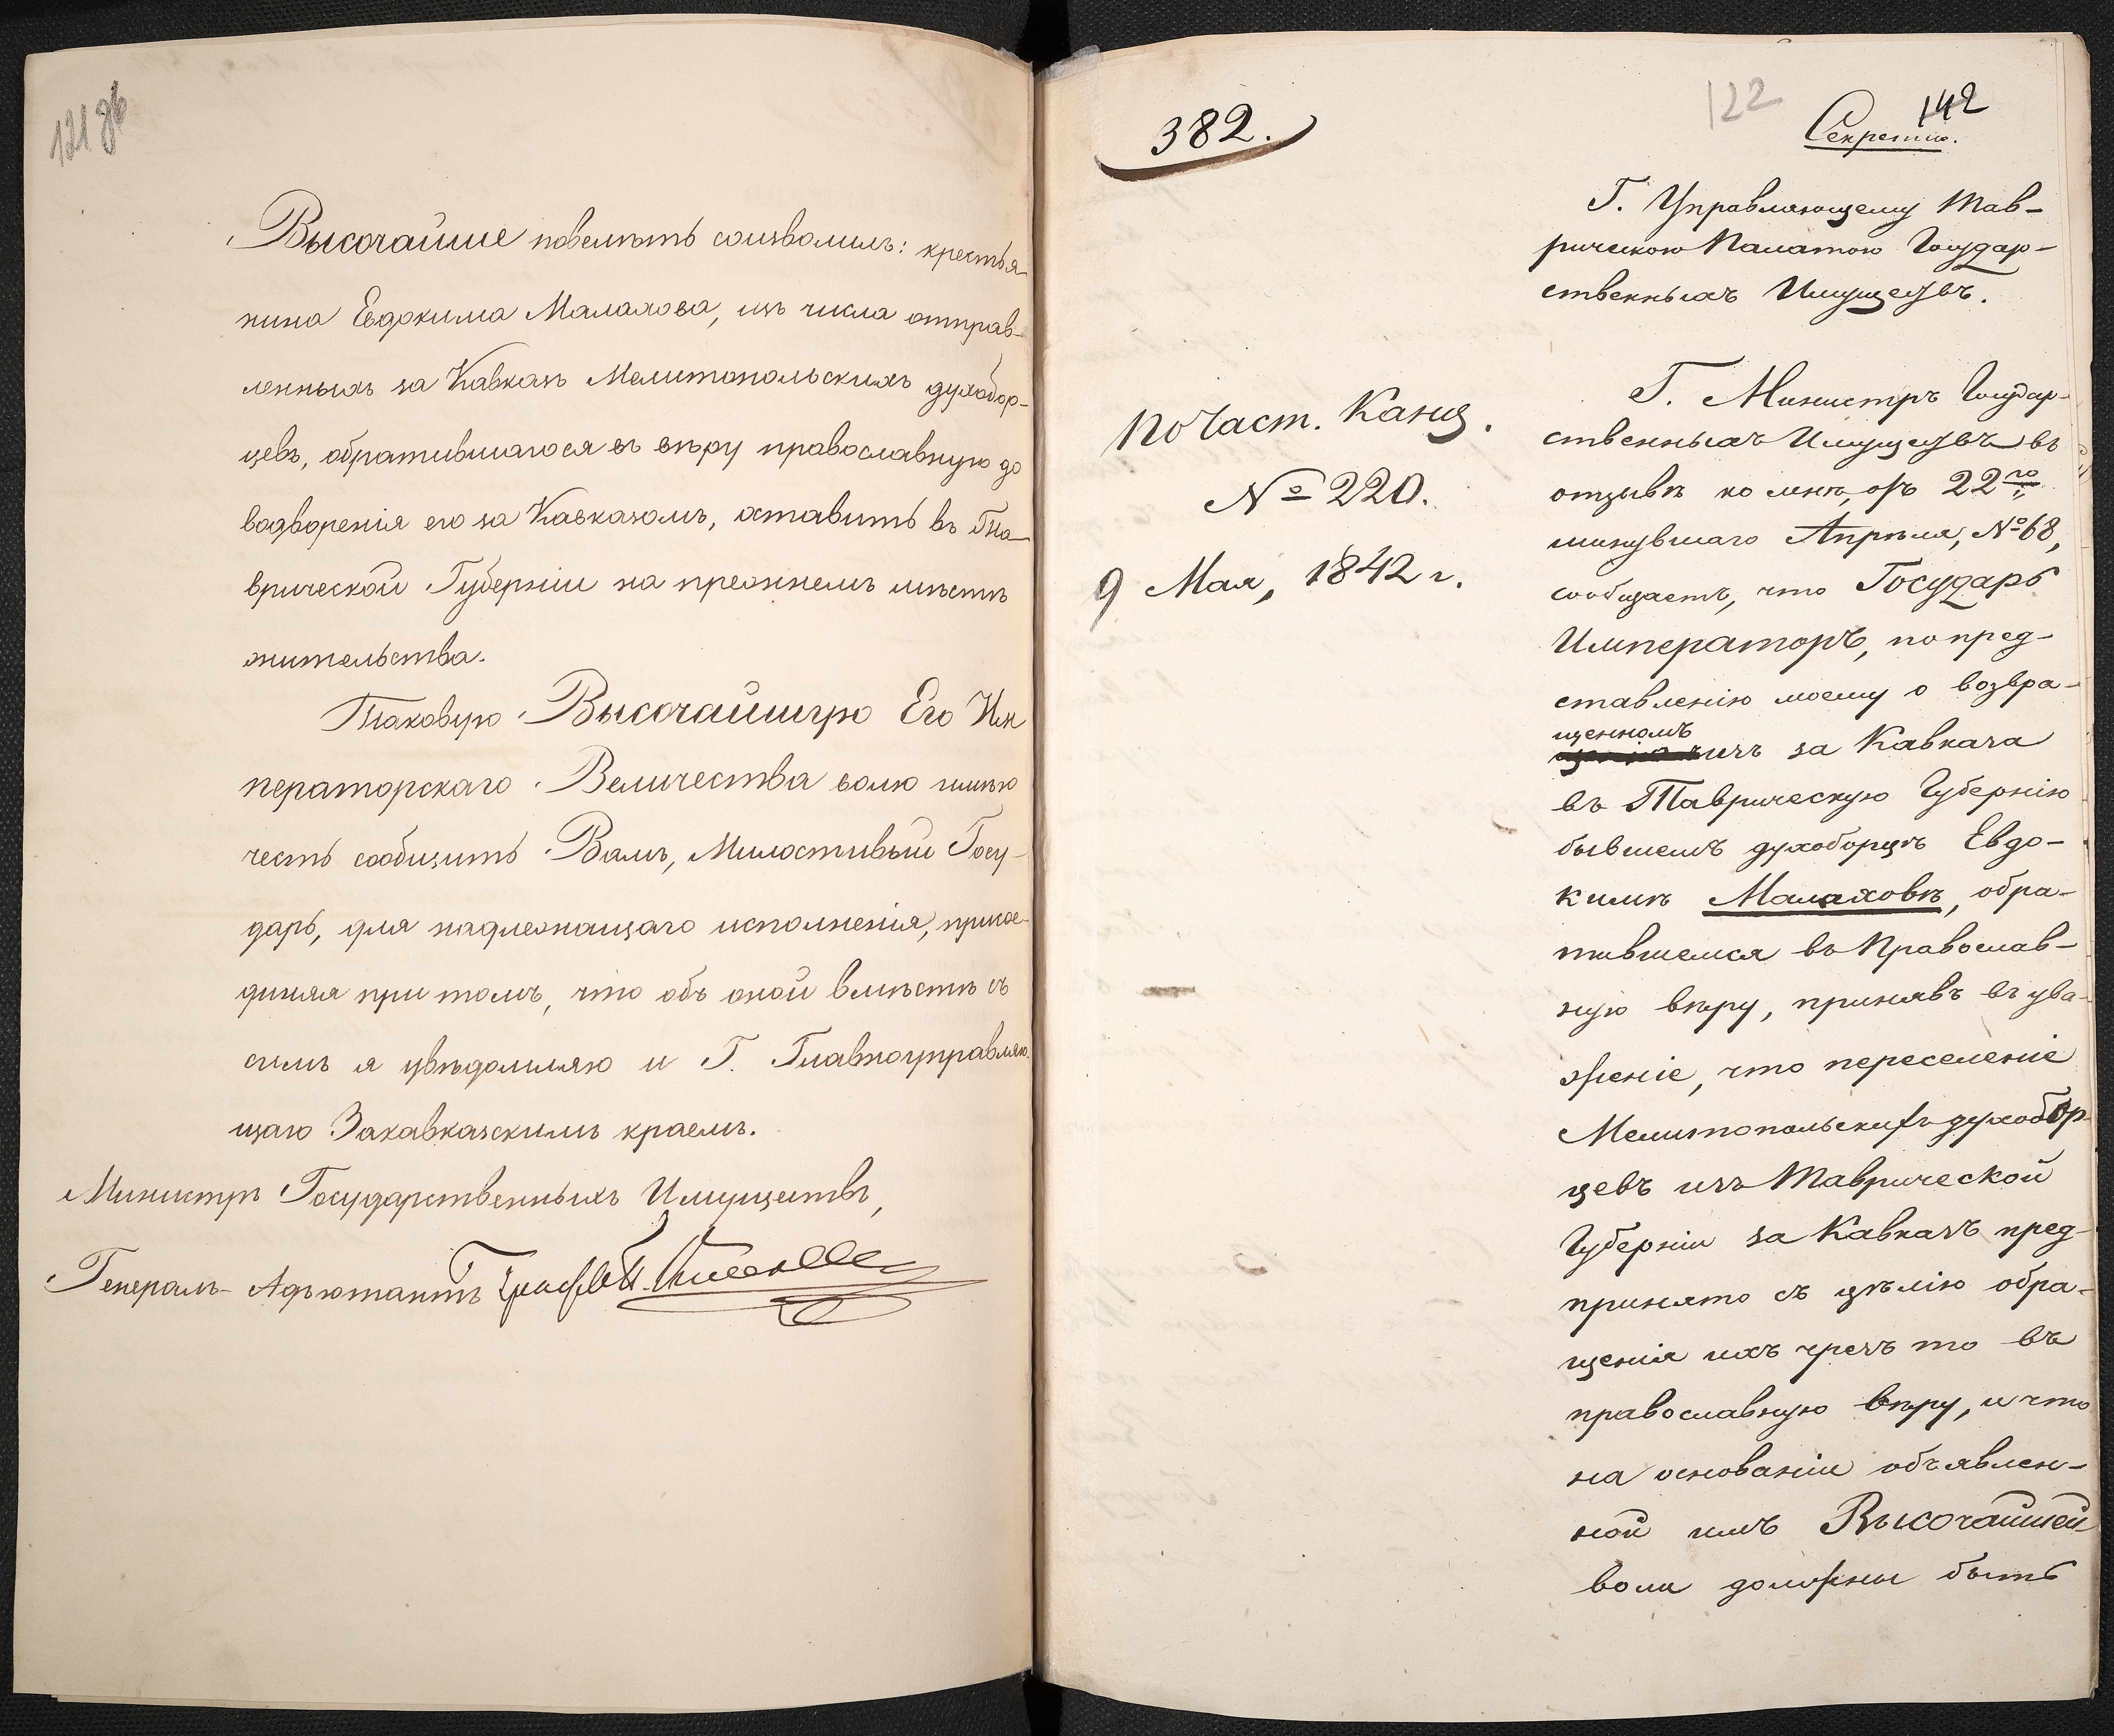 121 об
Высочайше повелѣть соизволилъ: крестья-
нина Евдокима Малахова, изъ числа отправ-
ленныхъ за Кавказъ Мелитопольскихъ духобор-
цевъ, обратившагося въ вѣру православную до
водворенія его за Кавказомъ, оставить въ Та-
врической Губерніи на прежнемъ мѣстѣ
жительства.
Таковую Высочайшую Его Им
ператорскаго Величества волю имѣю
честь сообщить Вамъ, Милостивый Госу-
дарь, для надлежащаго исполненія, присое-
диняя при томъ, что объ оной вмѣстѣ съ
симъ я увѣдомляю и Г. Главноуправляю
щаго Закавказскимъ краемъ.
Министръ Государственныхъ Имуществъ,
Генералъ-Адъютантъ Графъ П. Киселев
382.
122
142
Секретно.
Г. Управляющему Тав-
рическою Палатою Государ-
ственныхъ Имуществъ.
По Част. Канц.
№ 220.
9 Мая, 1842 г.
Г. Министръ Государ-
ственныхъ Имуществъ въ
отзывѣ ко мнѣ, отъ 22го
минувшаго Апрѣля, №68,
сообщаетъ, что Государь
Императоръ, по пред-
ставленію моему о возвра-
щенномъ
изъ за Кавказа
въ Таврическую Губернію
бывшемъ духоборцѣ Евдо-
кимѣ Малаховѣ, обра-
тившемся въ Православ-
ную вѣру, принявъ въ ува-
женіе, что переселеніе
Мелитопольскихъ духобор
цевъ изъ Таврической
Губерніи за Кавказъ пред-
принято съ цѣлію обра-
щенія ихъ чрезъ то въ
православную вѣру, и что
на основаніи объявлен-
ной имъ Высочайшей
воли должны быть